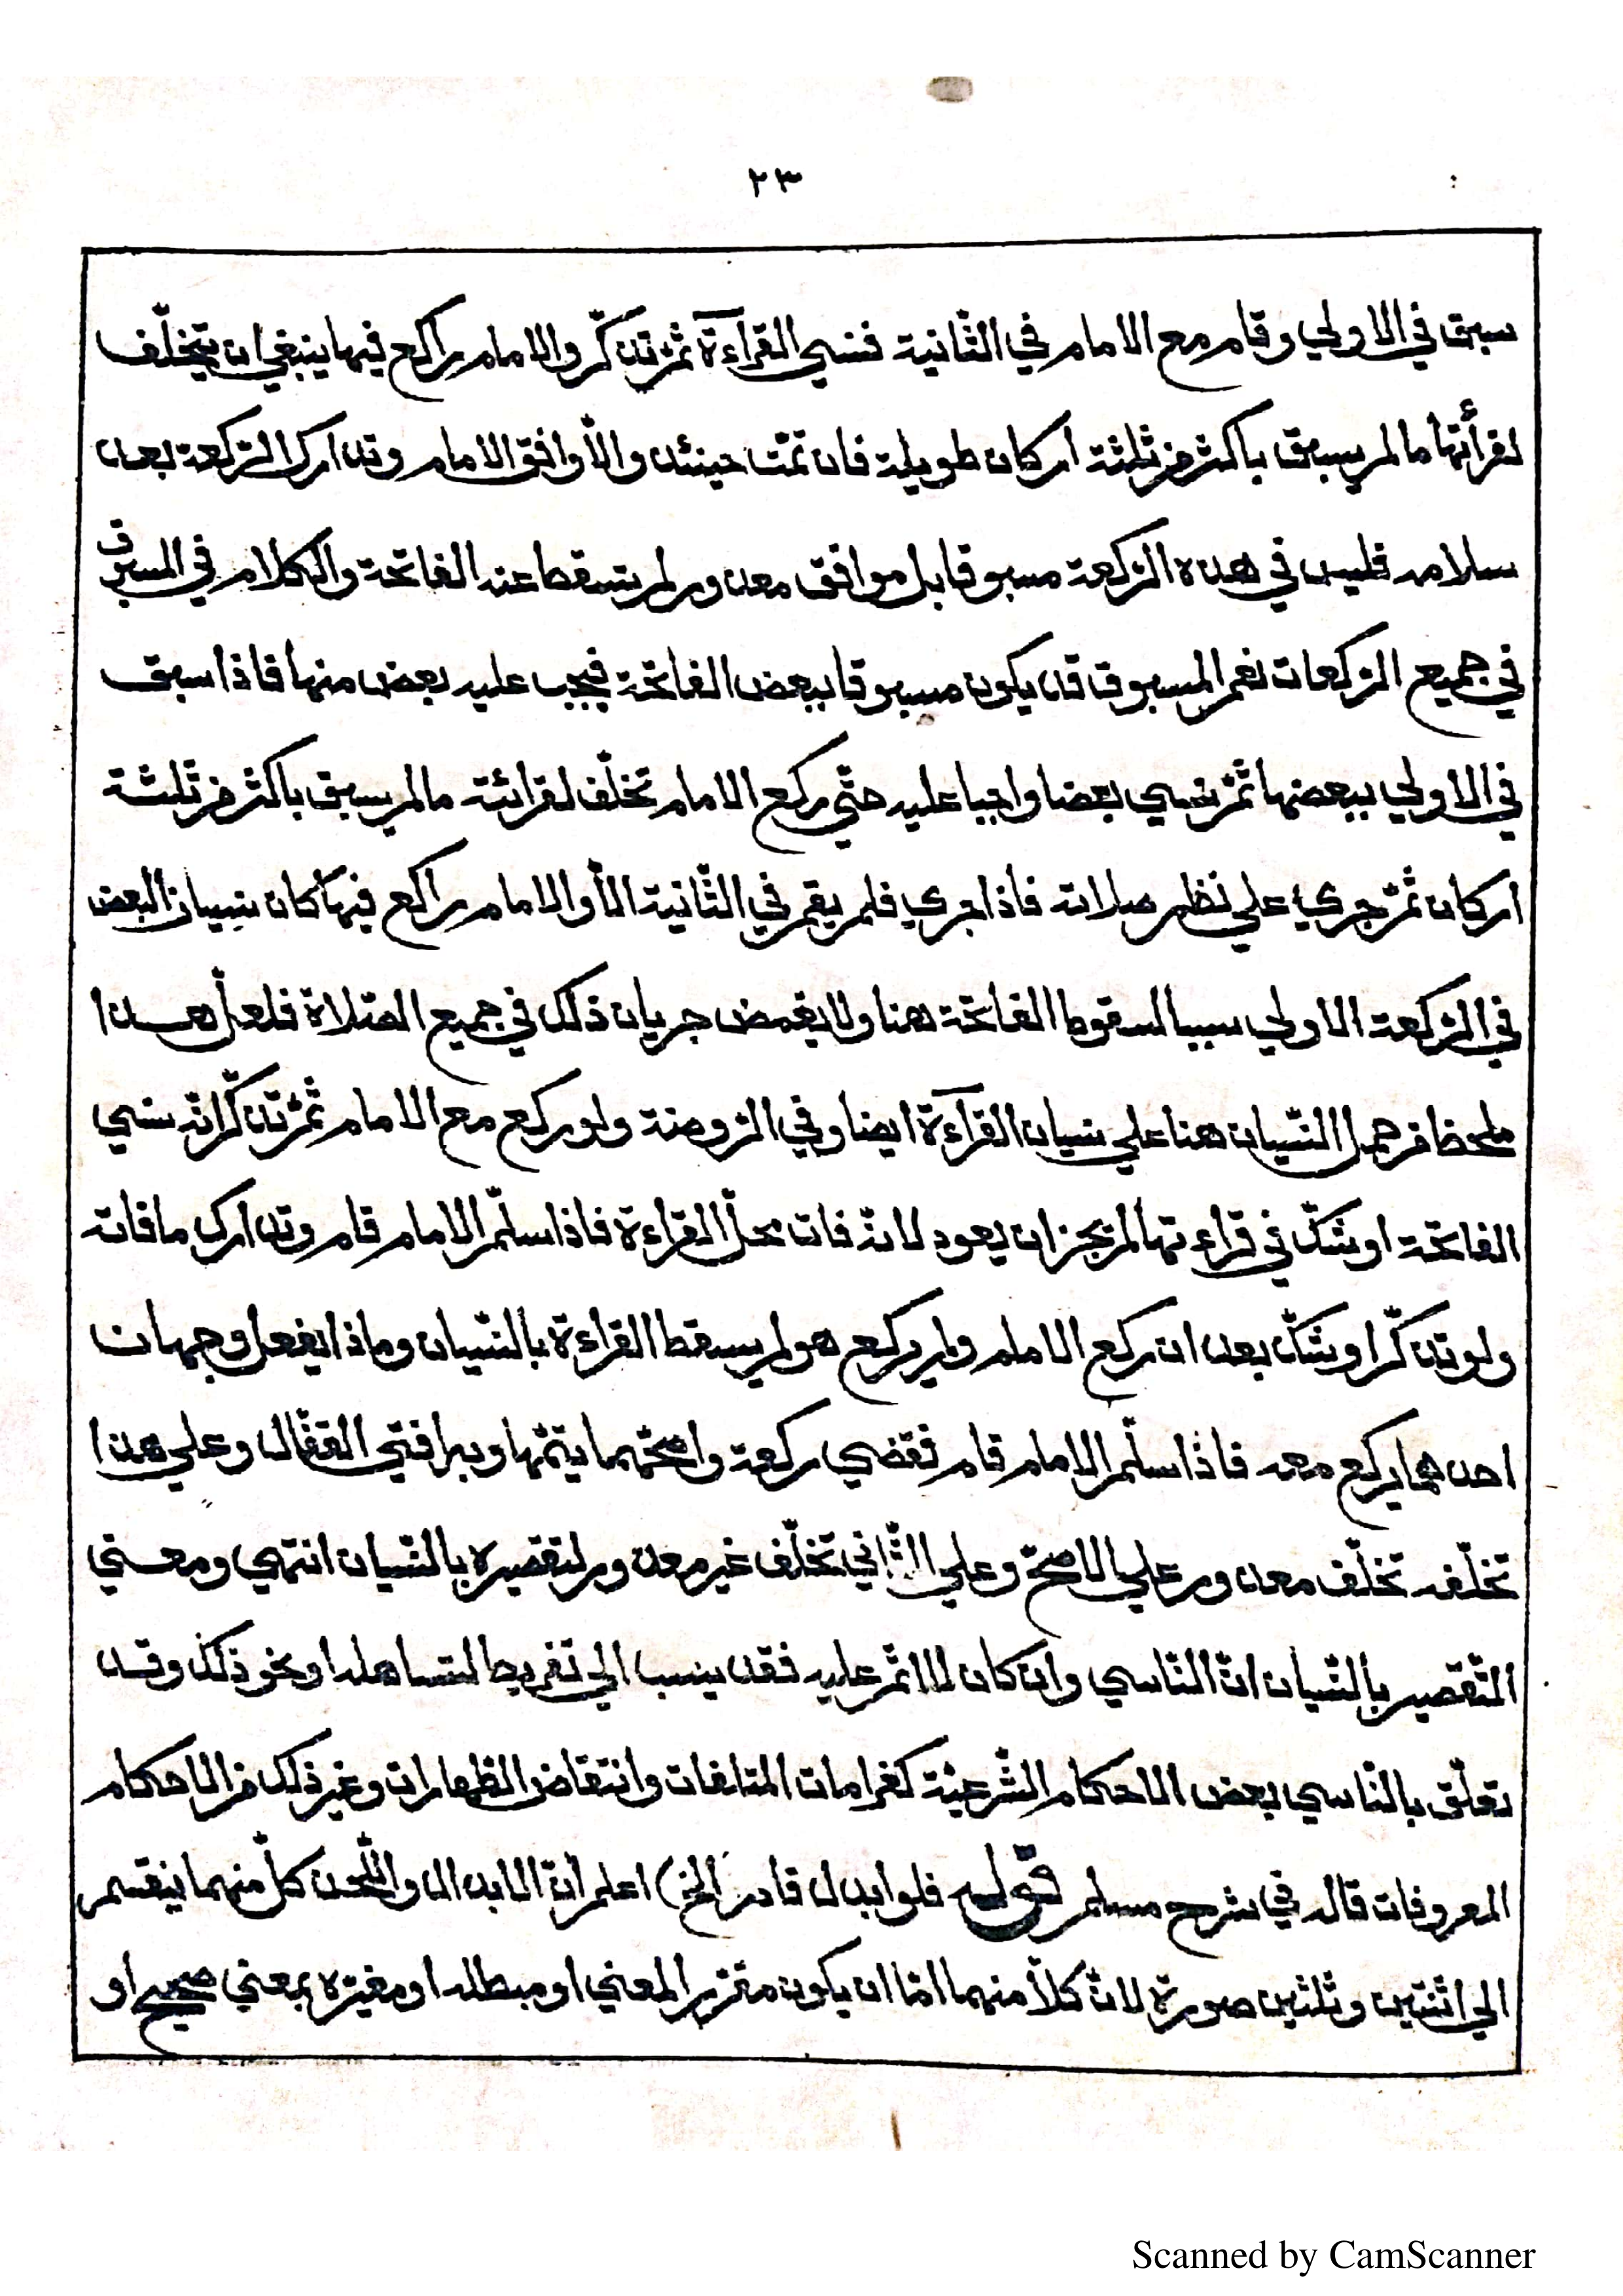 ٢٣
سبق في الاولي وقام مع الامام في الثّانية فنسي القرآءة ثمّ تذكّر والامام راكع فيها ينبغي ان يتخلّف
لقرأتها ما لم يسبق باكثر من ثلثة اركان طويلة فان تمّت حينئذ والّا وافق الامام وتدارك الرّكعة بعد
سلامه فليس في هذه الرّكعة مسبوقا بل موافق معذور لم يسقط عنه الفاتحة والكلام في المسبوق
في جميع الرّكعات نعم المسبوق قد يكون مسبوقا ببعض الفاتحة فيجب عليه بعض منها فاذا سبق
في الاولي ببعضها ثمّ نسي بعضا واجبا عليه حتّي ركع الامام تخلّف لقرائته ما لم يسبق باكثر من ثلثة
اركان ثمّ جري علي نظم صلاته فاذا جري فلم يقم في الثّانية الّا والامام راكع فيها كان نسيان البعض
في الرّكعة الاولي سببا لسقوط الفاتحة هنا ولا يغمض جريان ذلك في جميع الصّلاة فلعلّ هذا
ملحظ من حمل النّسيان هنا علي نسيان القرآءة ايضا وفي الرّوضة ولو ركع مع الامام ثمّ تذكّر انّه نسي
الفاتحة او شكّ في قراءتها لم يجز ان يعود لانّه فات محلّ القراءة فاذا سلّم الامام قام وتدارك ما فاته
ولو تذكّر او شكّ بعد ان ركع الامام ولم يركع هو لم يسقط القراءة بالنّسيان وماذا يفعل وجهان
احدهما يركع معه فاذا سلّم الامام قام فقضي ركعة واصحّهما يتمّها وبه افتي القفّال وعلي هذا
تخلّفه تخلّف معذور علي الاصحّ وعلي الثّاني تخلّف غير معذور لتقصيره بالنّسيان انتهي ومعني
التّقصير بالنّسيان انّ النّاسي وان كان لا اثم عليه فقد ينسب الي تفريط لتساهله او نحو ذلك وقد
تعلّق بالنّاسي بعض الاحكام الشّرعيّة كغرامات المتلفات وانتقاض الطّهارات وغير ذلك من الاحكام
المعروفات قاله في شرح مسلم قوله فلو ابدل قادر الخ) اعلم انّ الابدال واللّحن كلّ منهما ينقسم
الي اثنتين وثلثين صورة لانّ كلّا منهما امّا ان يكون مقرّر المعني او مبطله او مغيّره بمعني صحيح او
Scanned by CamScanner